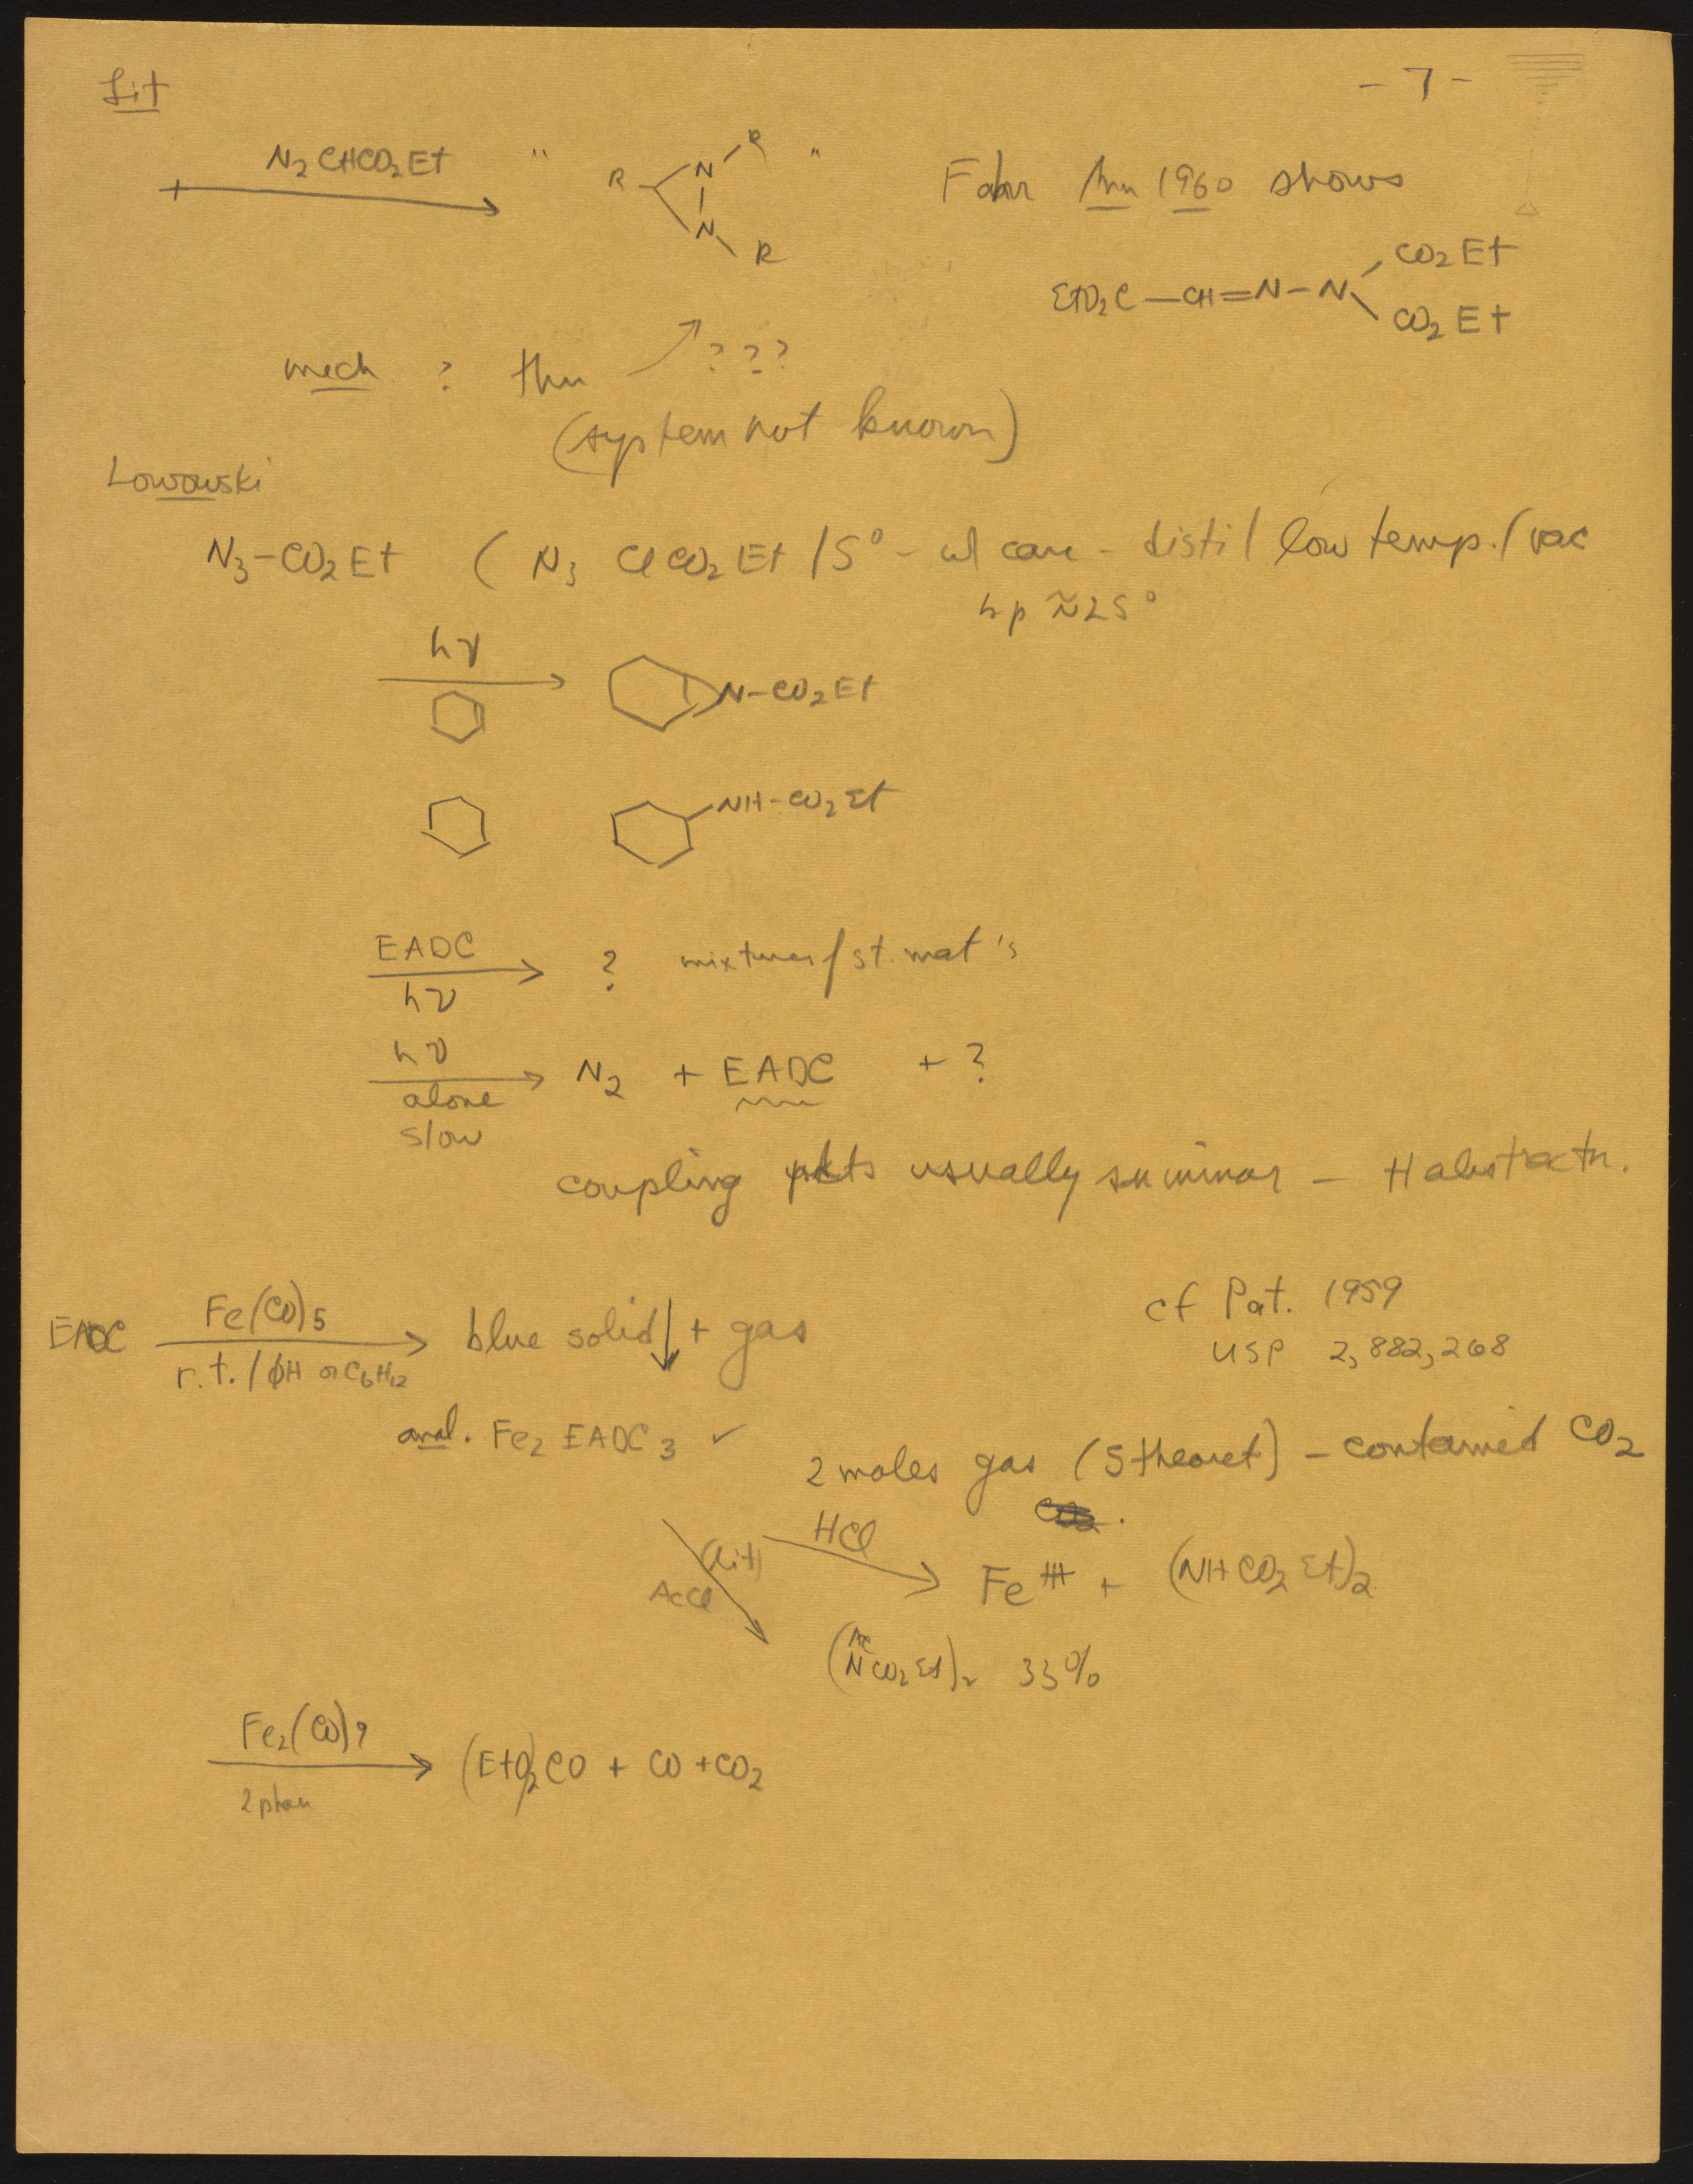 Lit
- 7 -
+ N2CHCO2Et " R N R N R " Fahr Ann 1960 shows
EtO2C—CH=N—N CO2Et CO2Et
mech ? thru ???
(system not known)
Lowowski
N3-CO2Et ( N3 ClCO2Et /5° - w/ care - distil low temp./vac
bp ≈25°
hν
N-CO2Et
NH-CO2Et
EADC
hν ? mixtures/st. mat's
hν
alone N2 + EADC + ?
slow
coupling pdts usually minor — H abstractn.
EADC Fe(CO)5 r.t./ϕH or C6H12 blue solid↓ + gas
cf Pat. 1959
USP 2,882,268
anal. Fe2 EADC3 ✓
2 moles gas (5 theoret) - contained CO2
HCl Fe+++ + (NHCO2Et)2
(Lit)
AcCl
(Ac NCO2Et)2 33%
Fe2(CO)9 (EtO)2CO + CO + CO2